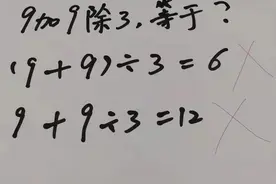 9加9除3,等于?
(9+9)÷3=6 ×
9+9÷3=12 ×